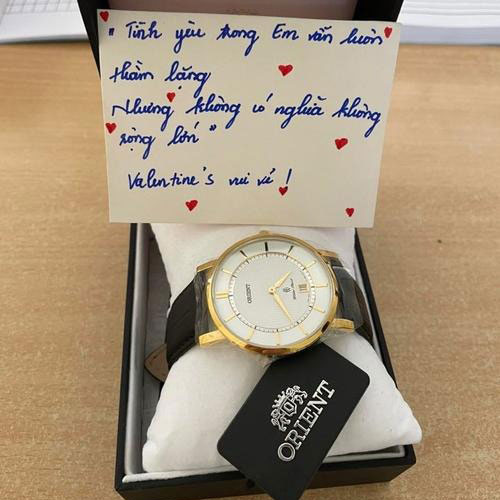 "Tình yêu trong Em vẫn luôn
thầm lặng
Nhưng không có nghĩa không
rộng lớn"
Valentine's vui vẻ !
ORIENT
ORIENT